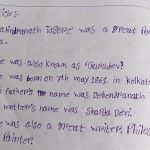 was a great
was also known as "Gurudev"
was born on 7th may 1861 in Kolkata
father's name was Debendranath
mother's name was Sharda Devi
was also a great writer,
Painter.